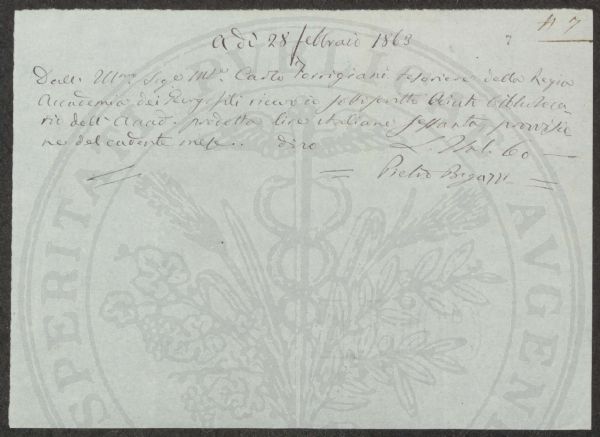 # 7
7
A dì 28 febbraio 1863
Dall' Illmo Sigr Mse Carlo Torrigiani tesoriere della Regia
Accademia dei Georgofili ricevo io sottoscritto Aiuto biblioteca-
rio dell' Accad. predetta lire italiane sessanta provvisio
ne del cadente mese .. dico L. Ital. 60 —
Pietro Bigazzi
PROSPERITATI PUBLICAE AVGENDAE